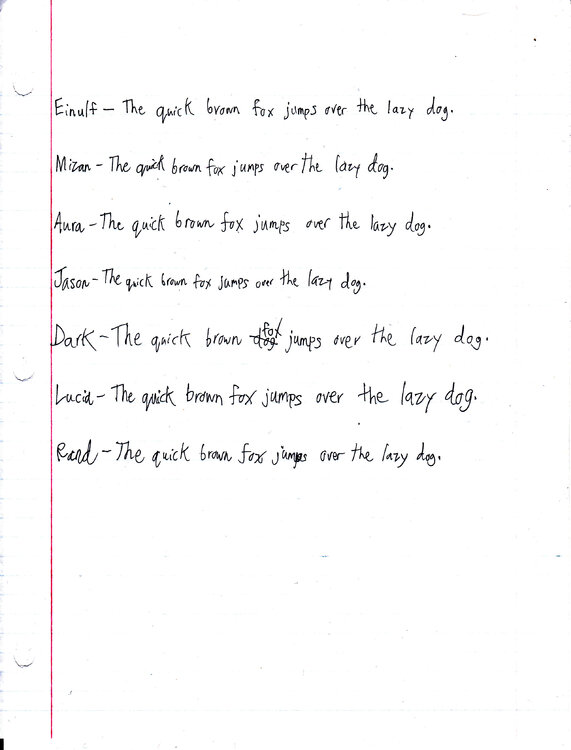 Einulf – The quick brown fox jumps over the lazy dog.
Mizan – The quick brown fox jumps over the lazy dog.
Aura – The quick brown fox jumps over the lazy dog.
Jason – The quick brown fox jumps over the lazy dog.
Dark – The quick brown dog fox jumps over the lazy dog.
Lucia – The quick brown fox jumps over the lazy dog.
Rand – The quick brown fox jumps over the lazy dog.